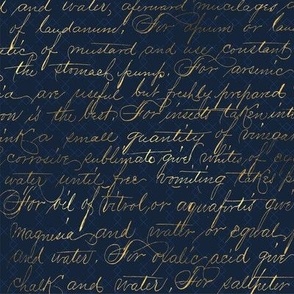 and water, afterward mucilages a
of laudanum. For opium or lau
of mustard and use constant
the stomach pump. For arsenic
are useful but freshly prepared
on is the best. For insects taken into
ink a small quantity of vinegar
corrosive sublimate give whites of
water until free vomiting takes p
For oil of vitrol, or aquafortis give
magnesia and water or equal p
and water. For Oxalic acid giv
chalk and water, For saltpeter